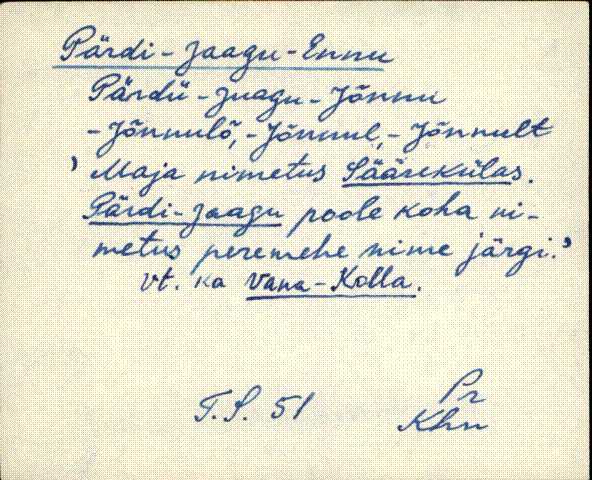 Pärdi-Jaagu-Ennu
Pärdü-Juagu-Jõnnu
-Jõnnulõ, -Jõnnul, -Jõnnult
' Maja nimetus Sääreküla​s.
Pärdi-Jaagu poole koha ni-
metus peremehe nime järgi.'
vt. ka Vana-Kolla.
T.S. 51
Pr
Khn